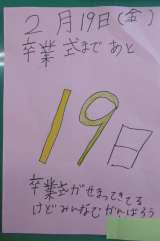 2月19日(金)
卒業式まであと
19日
卒業式がせまってきてる
けどみんなでがんばろう